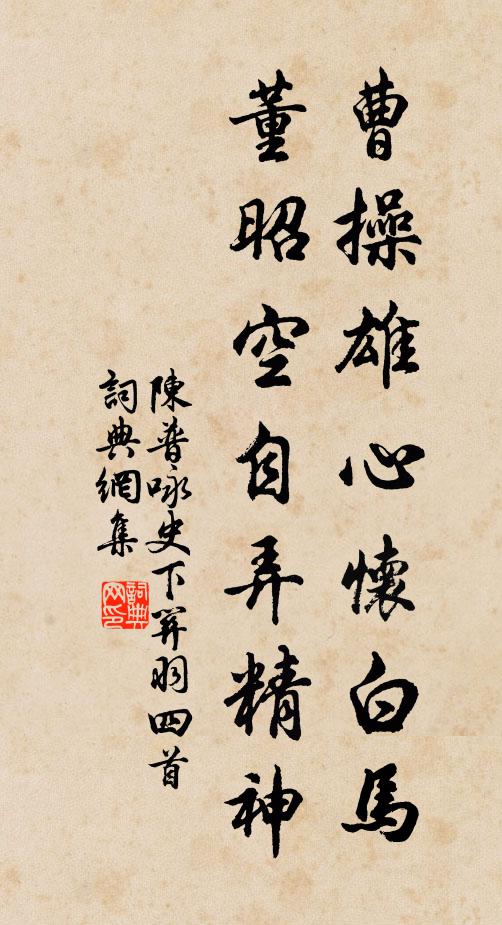 曹操雄心懷白馬
董昭空自弄精神
陳普咏史下關羽四首
詞典網集
詞典网印